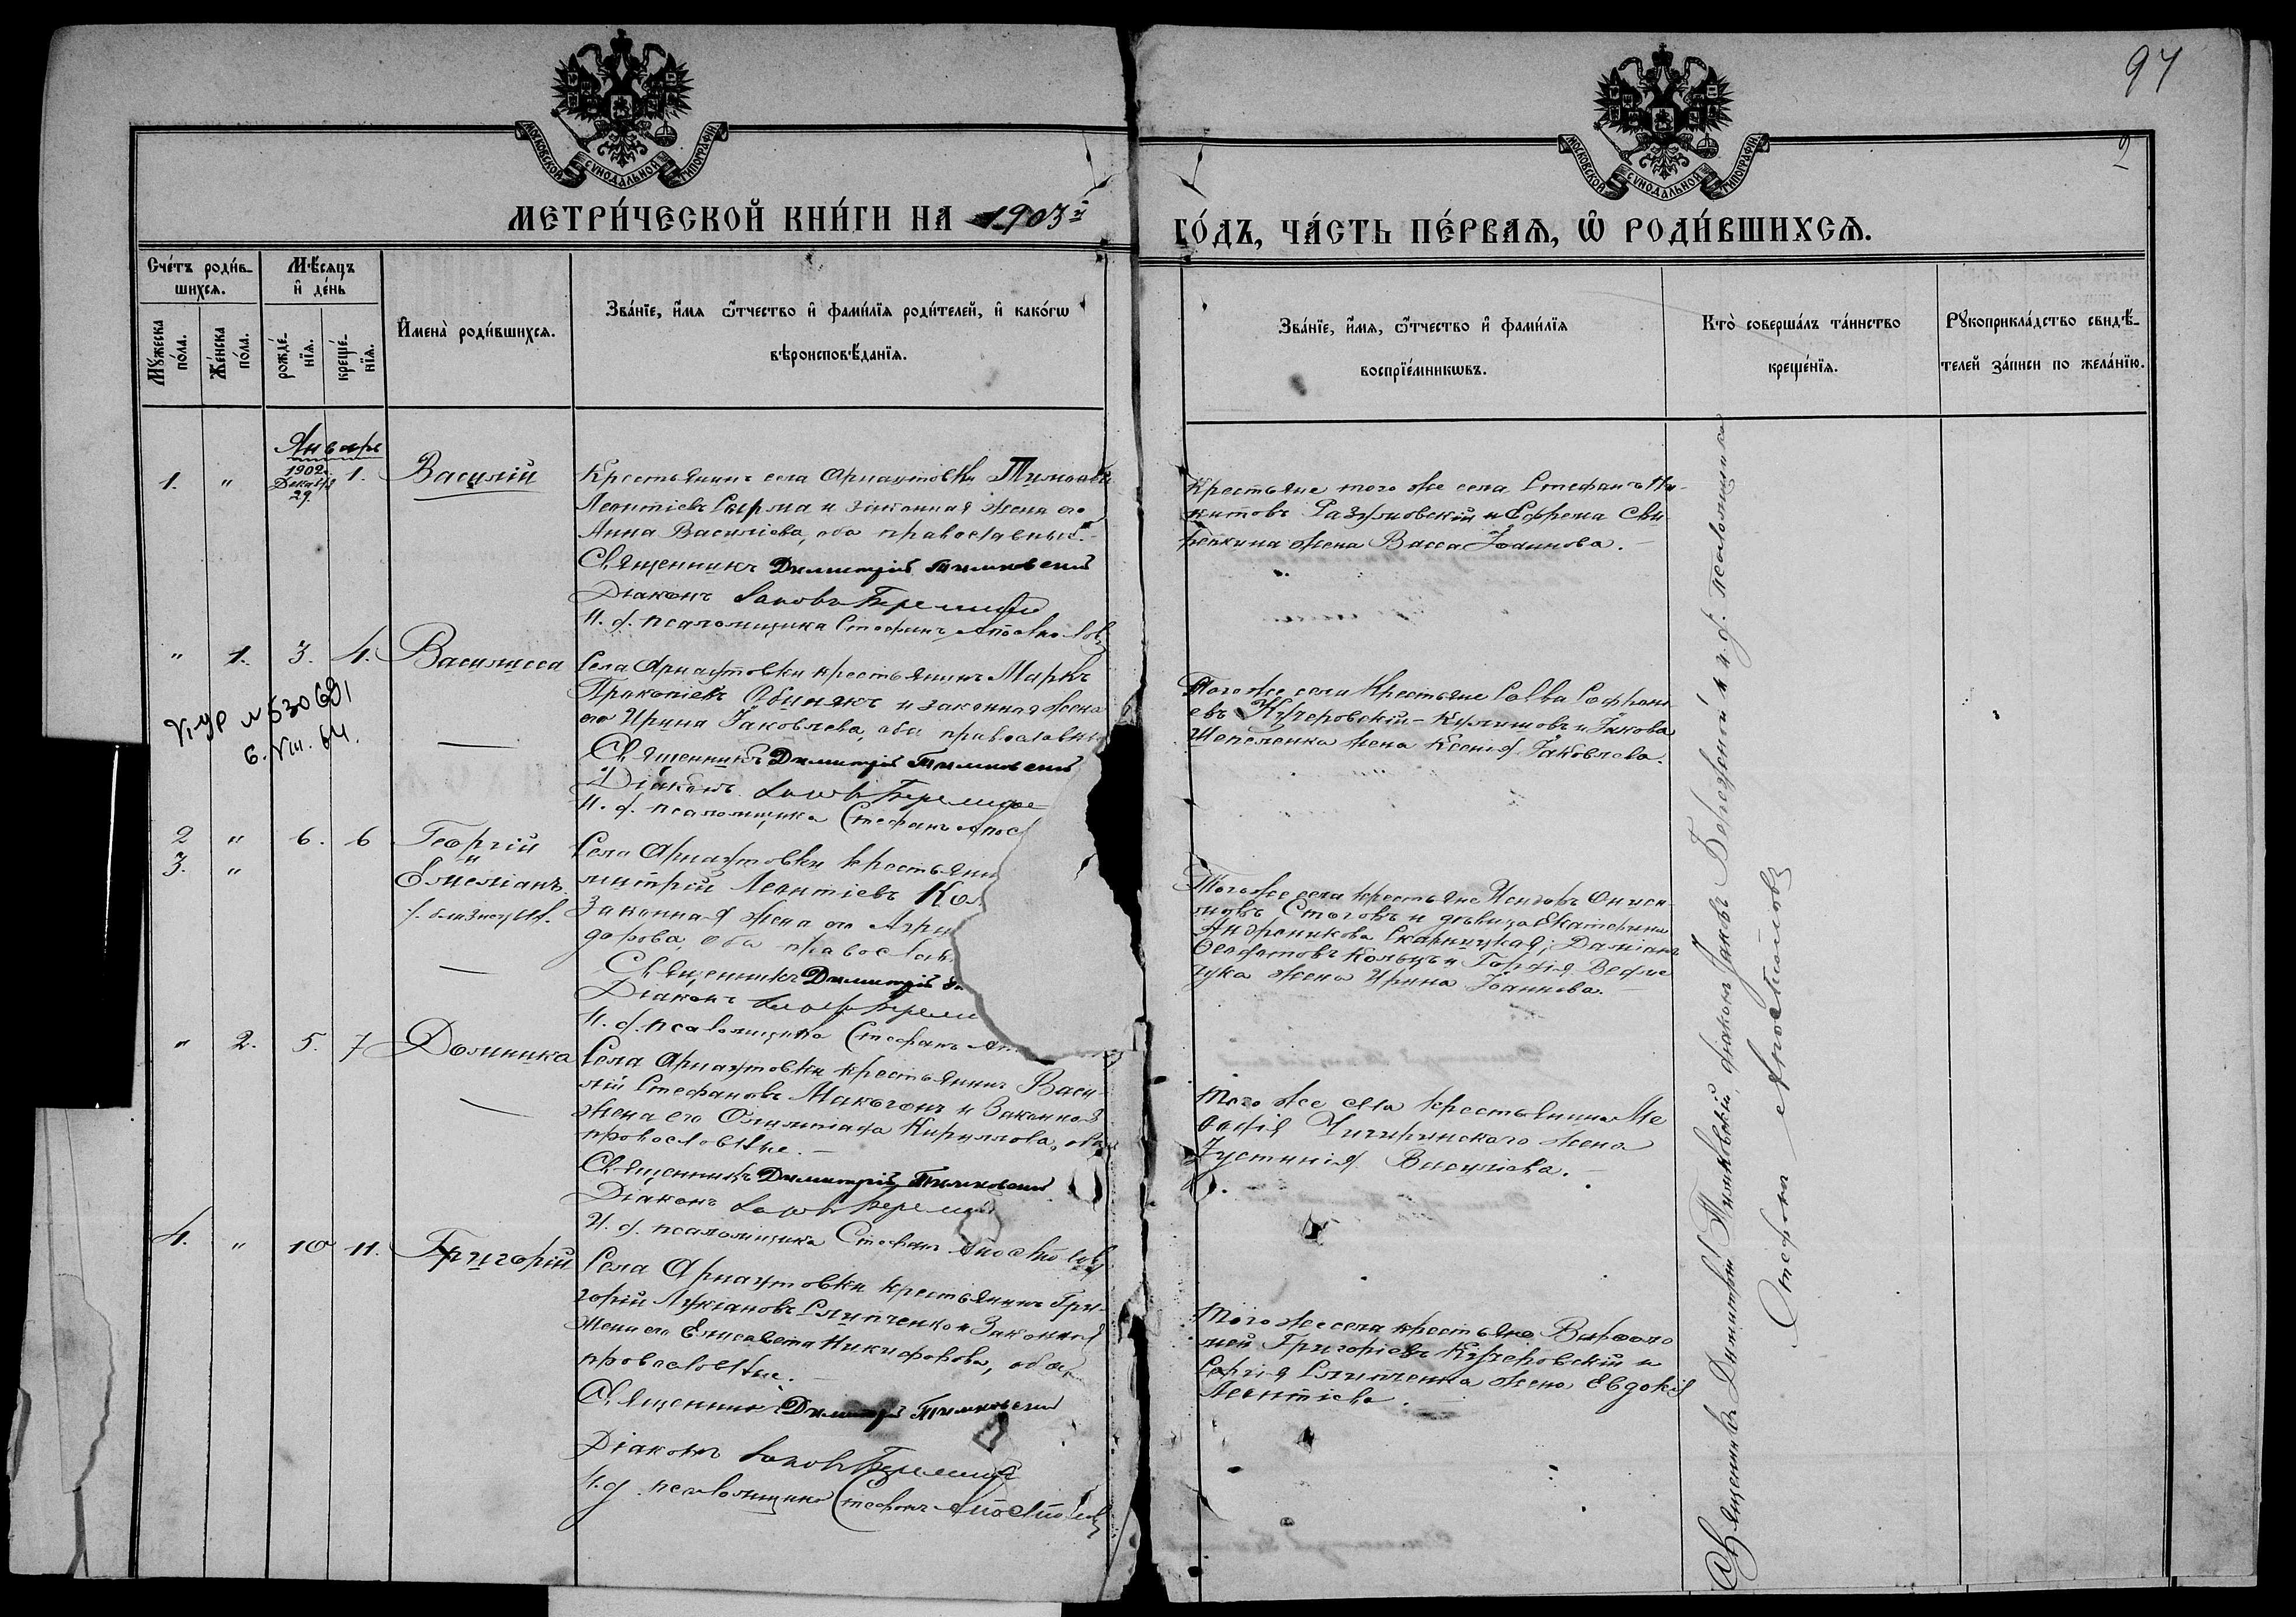 97
2
МОСКОВСКОЙ СѴНОДАЛЬНОЙ ТИПОГРАФІИ.
МОСКОВСКОЙ СѴНОДАЛЬНОЙ ТИПОГРАФІИ.
МЕТРИ́ЧЕСКОЙ КНИ́ГИ НА 1903й
ГО́ДЪ, ЧА́СТЬ ПЕ́РВАЯ, Ѽ РОДИ́ВШИХСЯ.
Сче́тъ роди́в-
шихся.
Мѣ́сяцъ
и҆ де́нь
Мꙋ́жеска
по́ла.
Же́нска
по́ла.
рожде́-
нїя.
креще́-
нїя.
И҆мена̀ роди́вшихся.
Зва́нїе, и҆́мя ѻ҆́тчество и҆ фами́лїя роди́телей, и҆ како́гѡ
вѣроисповѣ́данїя.
Зва́нїе, и҆́мя, ѻ҆́тчество и҆ фами́лїя
воспрїе́мникѡвъ.
Кто̀ соверша́лъ та́инство
креще́нїя.
Рꙋкоприкла́дство свидѣ́-
телей за́писи по жела́нїю.
Январь
1. " 1902 Декабря 29 1. Василій
Крестьянинъ села Арнаутовки
Леонтіевъ Сырма и законная жена его
Анна Василіева, оба православные.-
Священникъ Димитрій Тимковскій
Діаконъ Іаковъ
И. д. псаломщика Стефанъ Апостоловъ
Крестьяне того же села Стефанъ Ни-
китовъ Разумовскій и Ефрема Сви-
жена Васса Іоаннова.-
" 1. 3. 4. Василисса
Села Арнаутовки крестьянинъ Маркъ
Прокопіевъ и законная жена
его Ирина Іаковлева, оба православные
Священникъ Димитрій Тимковскій
Діаконъ Іаковъ
И. д. псаломщика Стефанъ Апос
Того же села крестьяне Савва Софрони-
евъ Кучеровскій-Кулишовъ и Іакова
Шепеленка жена Ксенія Іаковлева.
№530691
6.VIII.64.
2 " 6. 6 Георгій
3. " и
Емеліанъ.
/. близнецы./.
Села Арнаутовки крестьяни
митрій Леонтіевъ Ко
законная жена его Агри
дорова, оба православн
Священникъ Димитрій
Діаконъ Іаковъ
И. д. псаломщика Стефанъ Ап
Того же села крестьяне Исидоръ Ониси-
мовъ Стоговъ и дѣвица Екатерина
Андроникова Скарницкая; Даміанъ
жена Ирина Іоаннова.-
" 2. 5. 7 Домника
Села Арнаутовки крестьянинъ Васи-
лій Стефановъ Макогонъ и законная
жена его Олимпіада Кириллова, оба
православные.-
Священникъ Димитрій Тимковскій
Діаконъ Іаковъ
И. д. псаломщика Стефанъ Апостоловъ
Того же села крестьянина Ме-
фодія Чигиринскаго жена
Іустинія Василіева.-
4. " 10 11. Григорій
Села Арнаутовки крестьянинъ Гри-
горій Лукіановъ Слипченко и законная
жена его Елисавета Никифорова, оба
православные.-
Священникъ Димитрій Тимковскій
Діаконъ Іаковъ
И. д. псаломщика Стефанъ Апостоловъ
Того же села крестьяне Варфоло-
мей Григоріевъ Кучеровскій и
Сергія Слипченка жена Евдокія
Леонтіева.
Священникъ Димитрій Тимковскій, діаконъ Іаковъ и и. д. псаломщика
Стефанъ Апостоловъ